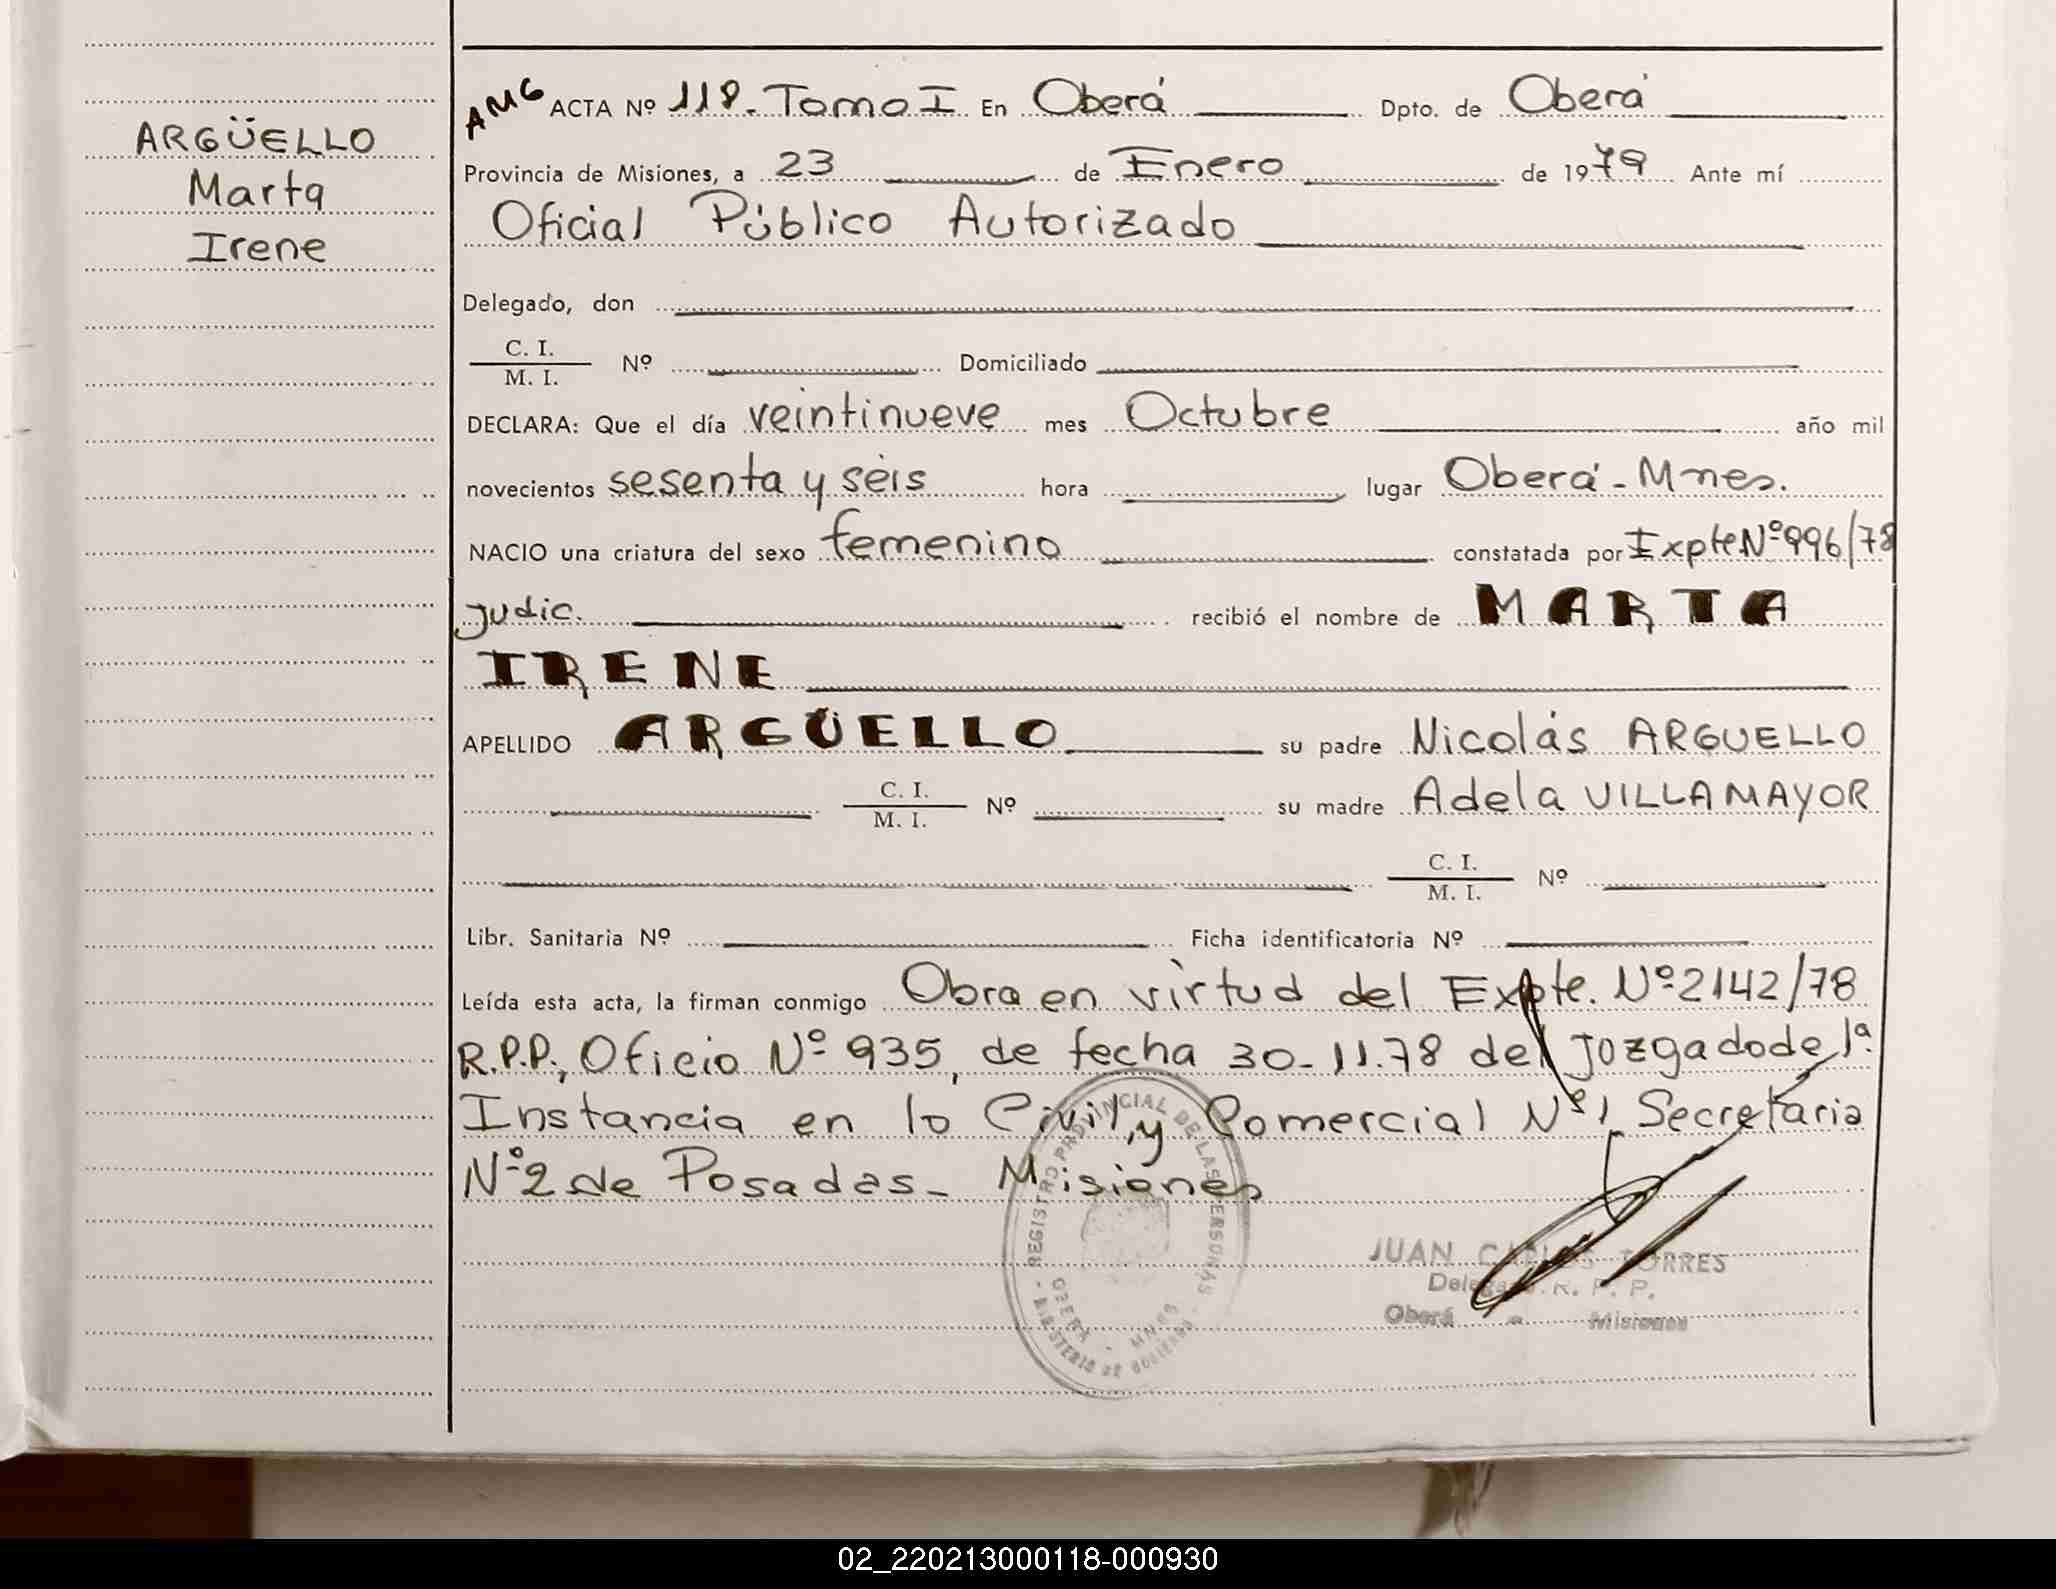 ARGÜELLO
Marta
Irene
AMG ACTA Nº 118. Tomo I En Oberá Dpto. de Oberá
Provincia de Misiones, a 23 de Enero de 1979 Ante mí
Oficial Público Autorizado
Delegado, don
C. I.
M. I. Nº Domiciliado
DECLARA: Que el día veintinueve mes Octubre año mil
novecientos sesenta y séis hora lugar Oberá - Mnes.
NACIO una criatura del sexo femenino constatada por Expte Nº 996/78
judic. recibió el nombre de MARTA
IRENE
APELLIDO ARGÜELLO su padre Nicolás ARGUELLO
C. I.
M. I. Nº su madre Adela VILLAMAYOR
C. I.
M. I. Nº
Libr. Sanitaria Nº Ficha identificatoria Nº
Leída esta acta, la firman conmigo Obra en virtud del Expte. Nº 2142/78
R.P.P., Oficio Nº 935, de fecha 30-11.78 del Jozgado de 1ª.
Instancia en lo Civil, y Comercial Nº 1 Secretaria
Nº 2 de Posadas - Misiones
REGISTRO PROVINCIAL DE LAS PERSONAS
MINISTERIO DE GOBIERNO
OBERA - MNES
JUAN CARLOS TORRES
Delegado R. P. P.
Oberá - Misiones
02_220213000118-000930